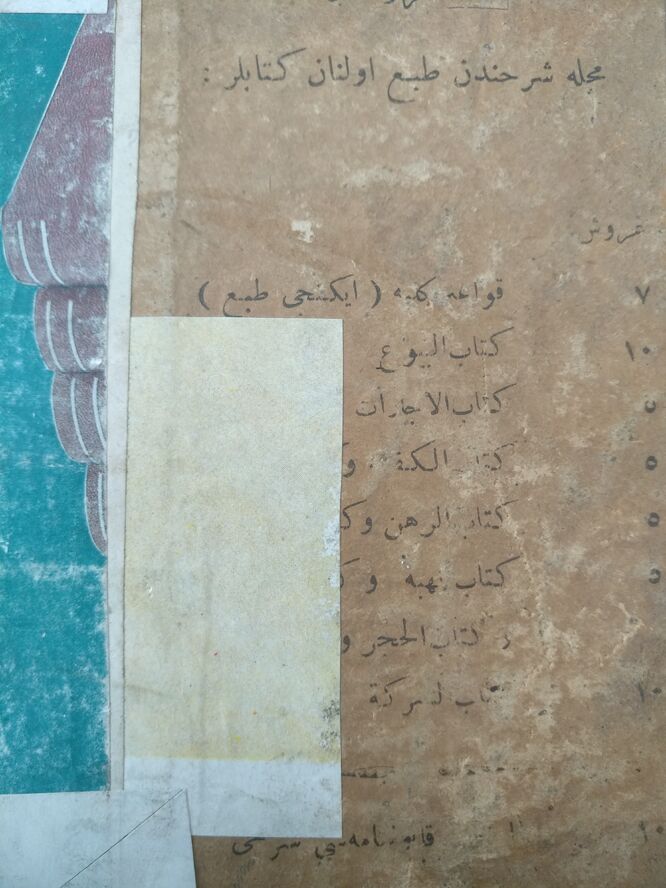 مجله شرحندن طبع اولنان كتابلر :
غروش
٧ قواعد كليه ( ايكنجى طبع )
١٠ كتاب البيوع
٥ كتاب الاجارات
٥ كتاب الكف و
٥ كتاب الرهن وك
٥ كتاب لهبه و ك
كتاب الحجر و
١٠ كتاب لشركة
شرحى